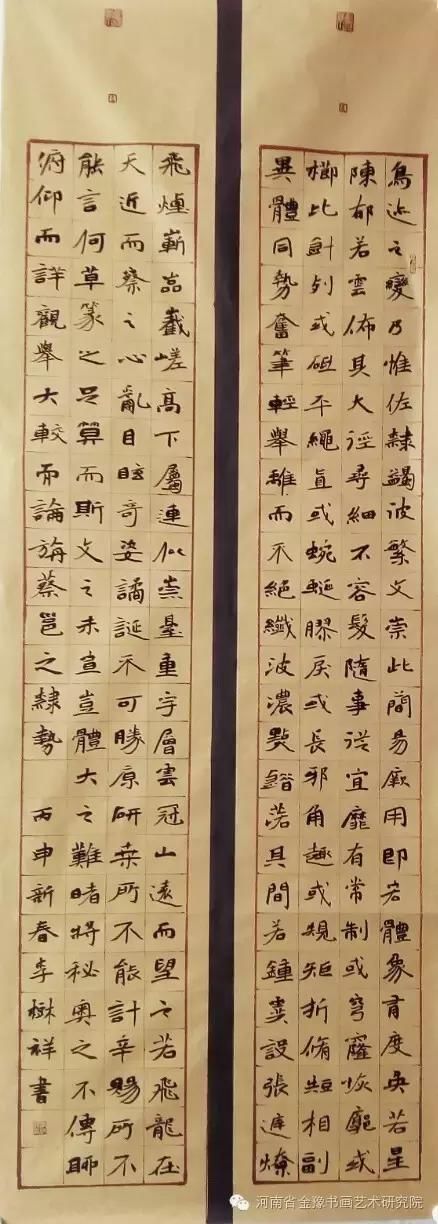 鳥迹之變乃惟佐隸蠲彼繁文崇此簡易厥用即若體象有度奐若星
陳郁若雲佈其大徑尋細不容髮隨事從宜靡有常制或穹窿恢廓或
櫛比針列或砠平繩直或蜿蜒膠戾或長邪角趣或規矩折脩短相副
異體同勢奮筆輕舉離而不絕纖波濃點錯落其間若鍾虡設張庭燎
飛煙嶄嵓巀嵯高下屬連似崇臺重宇層雲冠山遠而望之若飛龍在
天近而察之心亂目眩奇姿譎誕不可勝原研桒所不能計辛賜所不
能言何草篆之足算而斯文之未宣豈體大之難睹將秘奧之不傳聊
俯仰而詳觀舉大較而論旃蔡邕之隸勢 丙申新春李樹祥書
河南省金豫书画艺术研究院